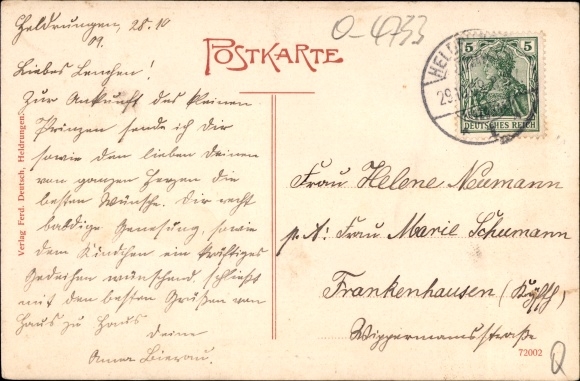 Heldrungen, 28.10
09.
O-4733
POSTKARTE
Liebes Lenchen!
Zur Ankunft des kleinen
Prinzen sende ich dir
sowie den lieben Deinen
von ganzem Herzen die
besten Wünsche. Dir recht
baldige Genesung, sowie
dem Kindchen ein kräftiges
Gedeihen wünschend, schließt
mit den besten Grüßen von
Haus zu Haus
Deine
Anna Bierau.
Verlag Ferd. Deutsch, Heldrungen.
HELD
29.
5 5
DEUTSCHES REICH
Frau Helene Neumann
p. A: Frau Marie Schumann
Frankenhausen (Kyffh,
Wippermannstraße
72002
Q